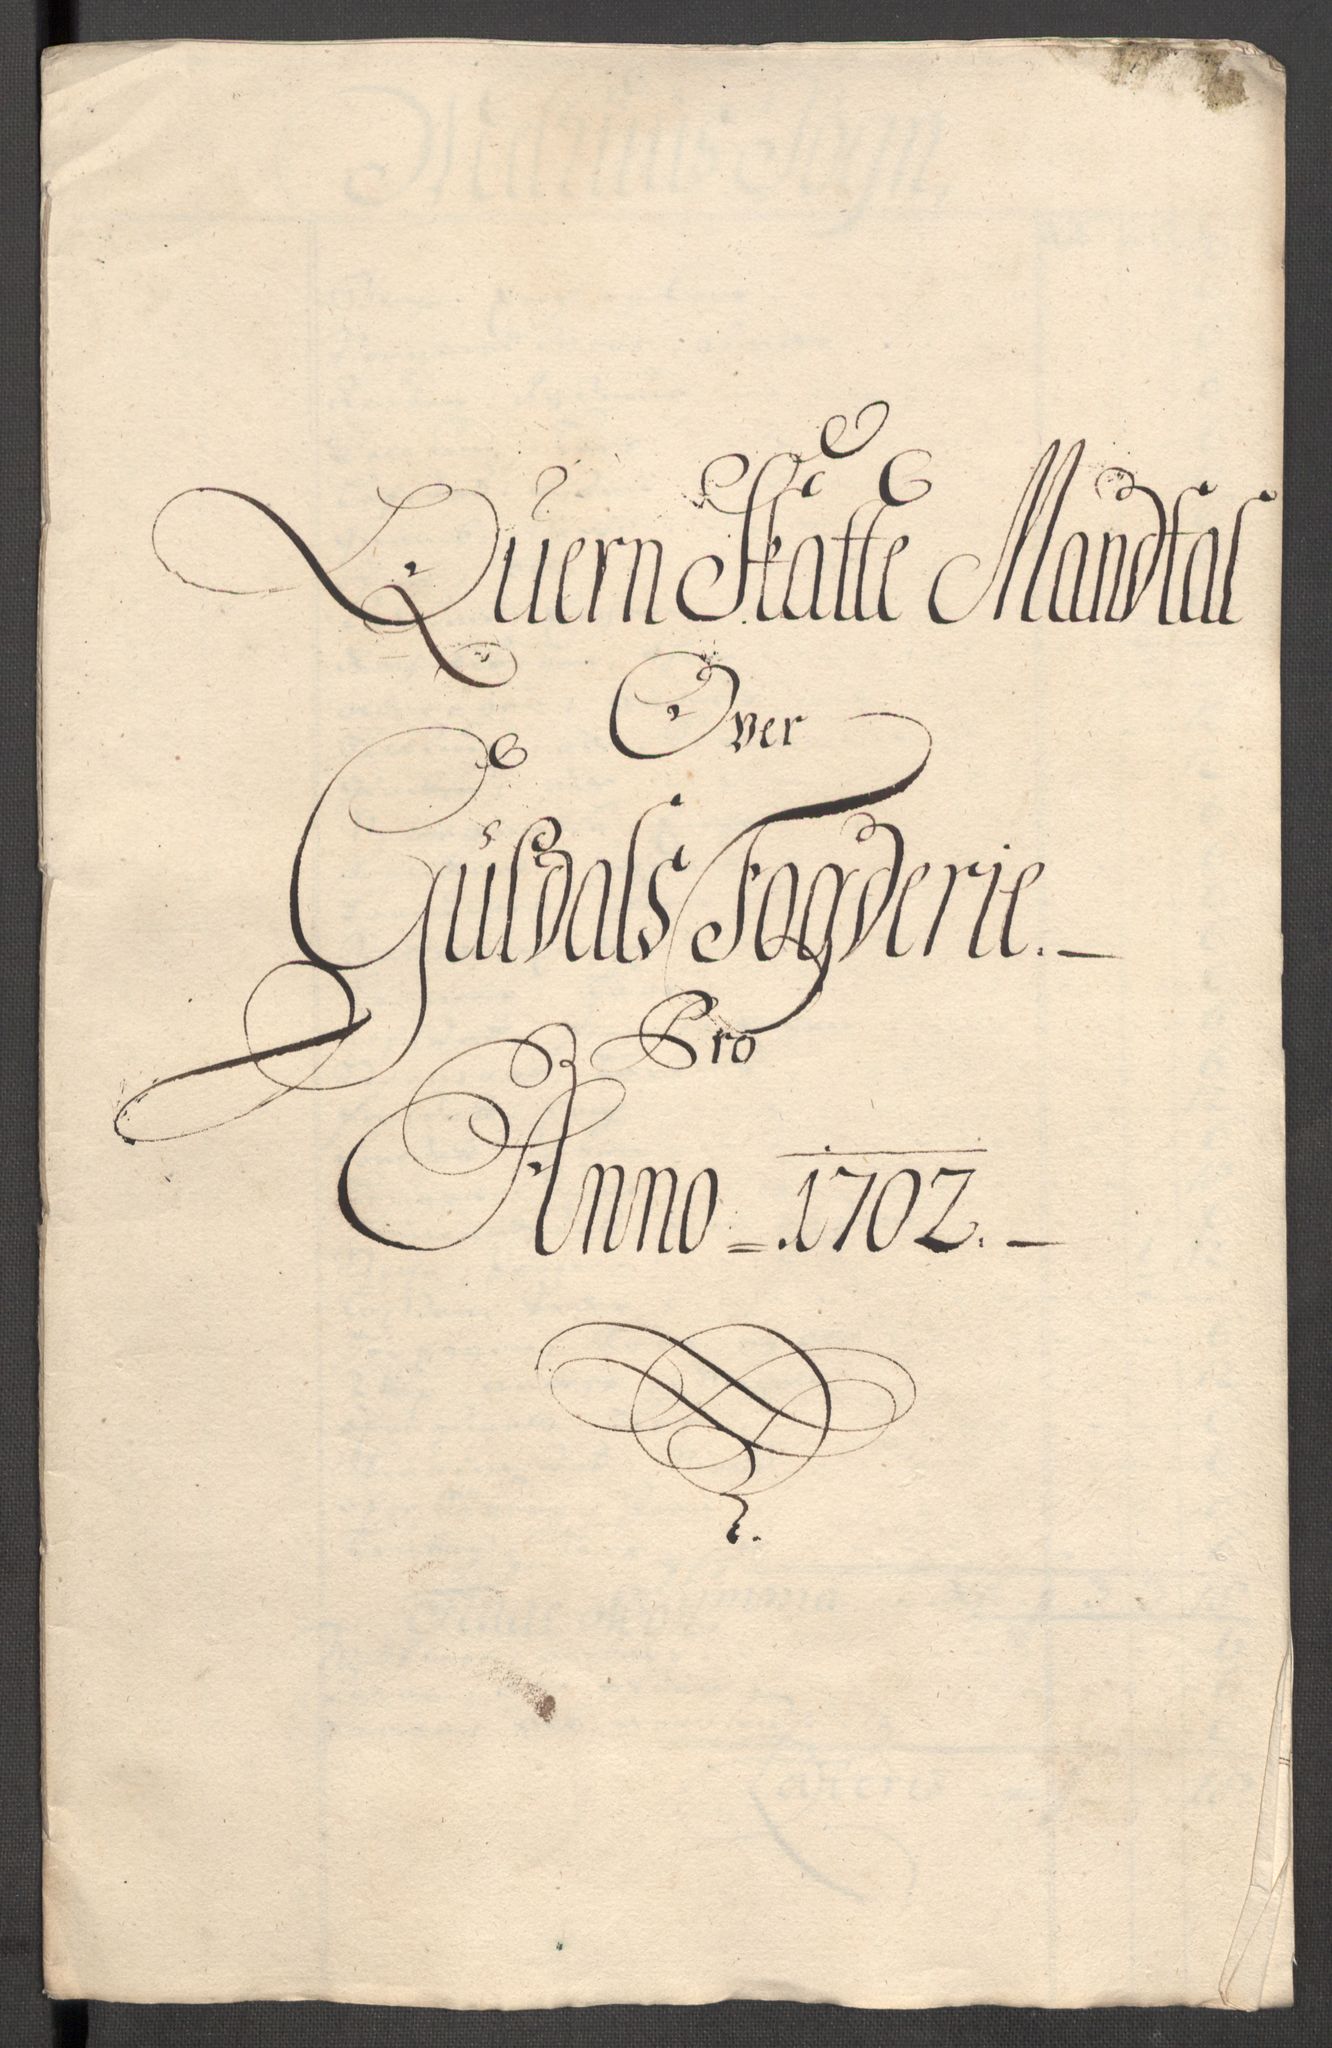 Quern Skatte Mandtal
Over
Guldals Fogderie.
Pro
Anno = .1702.